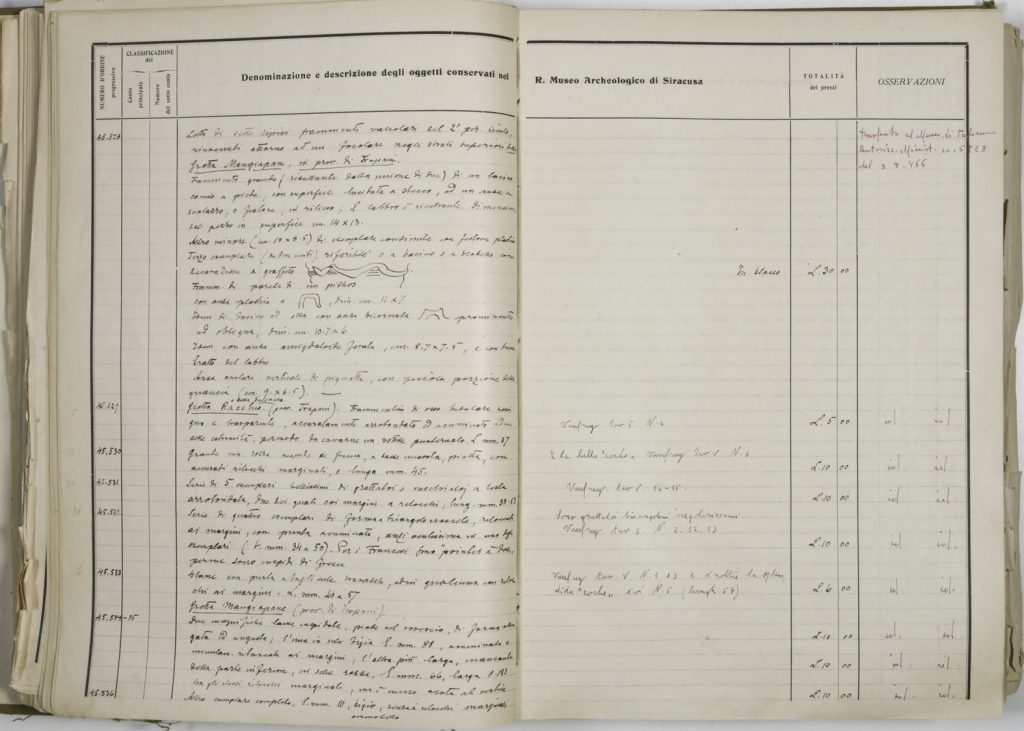 NUMERO D'ORDINE progressivo
CLASSIFICAZIONE del
Conto principale
Numero del sotto conto
Denominazione e descrizione degli oggetti conservati nel
45.528
Lotto di sette tipici frammenti vascolari del 2° per. siculo,
rinvenuti attorno ad un focolare negli strati superiori della
Grotta Mangiapane, in prov. di Trapani.
Frammento grande (risultante dalla unione di due) di un bacino
conico a piede, con superficie lucidata a stecco, ed un ansa a
o festone, in rilievo; il labbro è rientrante. Dimensioni
del pezzo in superficie cm. 14 x 13.
Altro minore (cm. 10 x 8.5) di esemplare consimile con festone plastico
Terzo esemplare riferibile o a bacino o a scodella con
decorazione a graffito
Framm. di parete di un pithos
con ansa plastica a , dim. cm. 11 x 7
Idem di bacino ed olla con ansa bicornata prominente
ed obliqua, dim. cm. 10.7 x 6
Idem con ansa amigdaloide forata, cm. 8.7 x 7.5, e con breve
tratto del labbro
Ansa anulare verticale di pignatta, con piccola porzione della
guancia (cm. 9 x 6.5).
45.529
Grotta Racchio (prov. Trapani). Frammentino di osso tubolare
e trasparente, accuratamente arrotondato ed acuminato ad
una estremità, L. mm. 37
45.530
Grande in rossa di freccia, a base piatta, con
accurati ritocchi marginali, e lunga mm. 45.
45.531
Serie di 5 esempari bellissimi di grattatoi o raschiatoi a testa
arrotondata, due dei quali coi margini a ritocchi; lung. mm. 38-53
45.532
Serie di quattro esemplari di forma triangolare, ritoccati
ai margini, con punta acuminata, anzi acutissima in uno degli
esemplari (L. mm. 34 a 50). Per i Francesi sono "pointes à dos",
per me sono cuspidi di frecce
45.533
4 lame con punta a taglio, ed qualcuna con ritocchi
ai margini. L. mm. 40 a 57
Grotta Mangiapane (prov. di Trapani).
45.534-35
Due magnifiche lame cuspidate, piatte al rovescio, di forma allungata
ed angusta; l'una in selce bigia L. mm. 88, acuminata e
minutam. ritoccata ai margini; l'altra più larga, mancante
della parte inferiore, in selce rossa, L. mm. 66, larga
con gli stessi ritocchi marginali, ma meno acuta al vertice
45.536
Altro esemplare completo, L. mm. 10, bigio, senza ritocchi marginali
R. Museo Archeologico di Siracusa
TOTALITÀ dei prezzi
OSSERVAZIONI
Trasferito al Museo di Palermo
Autorizz. Minist. n. 5528
del 3.8.966
In blocco L. 30 00
Vaufrey Tav. 5 N. 4 L. 5 00 id. id.
È la bella "coche" Vaufrey Tav. V N. 6 L. 10 00 id. id.
Vaufrey Tav V. 14-15. L. 10 00 id id.
Sono grattatoi triangolari
Vaufrey Tav 5 N. 2, 12, 13 L. 10 00 id. id.
Vaufrey Tav. V N. 1 e 3 e inoltre la splendida
"coche" ivi N. 5. (lungh 57) L. 6 00 id. id.
L. 10 00 id. id.
L. 10 00 id. id.
L. 10 00 id. id.